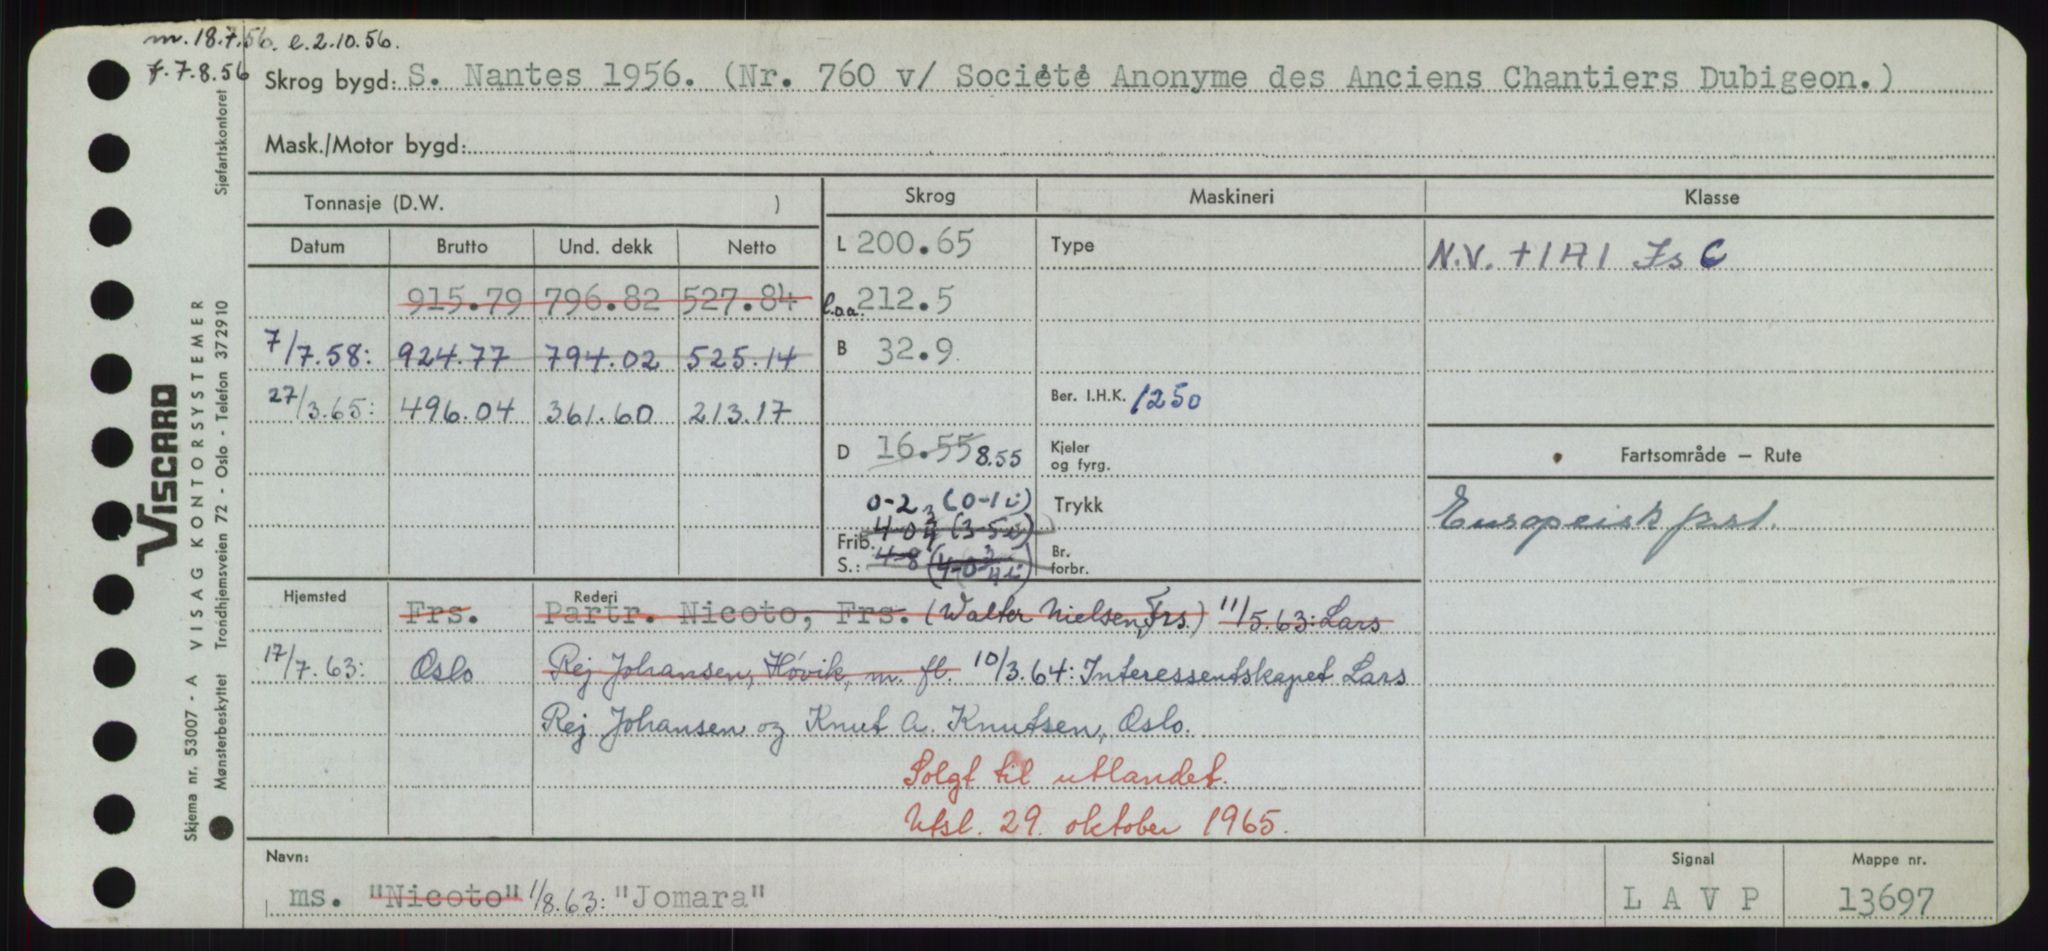 m. 18.7.56. e. 2.10.56.
f. 7.8.56
Skrog bygd: S. Nantes 1956. (Nr. 760 v/ Société Anonyme des Anciens Chantiers Dubigeon.)
Mask./Motor bygd:
Tonnasje (D.W. )
Skrog
Maskineri
Klasse
Datum Brutto Und. dekk Netto
L 200.65
Type
N.V. +1A1 Is C
915.79 796.82 527.84
l.o.a. 212.5
7/7.58: 924.77 794.02 525.14
B 32.9
27/3.65: 496.04 361.60 213.17
Ber. I.H.K. 1250
D 16.55 8.55
Kjeler og fyrg.
Fartsområde — Rute
0-2 (0-1 i)
Trykk
Europeisk fart.
4-0 3/4 (3-5 i)
Frib.
S.: 4-8 (4-0 3/4 i)
Br. forbr.
Hjemsted
Rederi
Frs. Partr. Nicoto, Frs. (Walter Nielsen, Frs.) 11/5.63: Lars
17/7.63: Oslo Rej Johansen, Høvik, m. fl. 10/3.64: Interessentskapet Lars
Rej Johansen og Knut A. Knutsen, Oslo.
Solgt til utlandet.
Utsl. 29. oktober 1965.
Navn:
ms. "Nicoto" 1/8.63: "Jomara"
Signal
L A V P
Mappe nr.
13697
VISCARD
Skjema nr. 53007 - A VISAG KONTORSYSTEMER
Mønsterbeskyttet Trondhjemsveien 72 - Oslo - Telefon 372910 Sjøfartskontoret